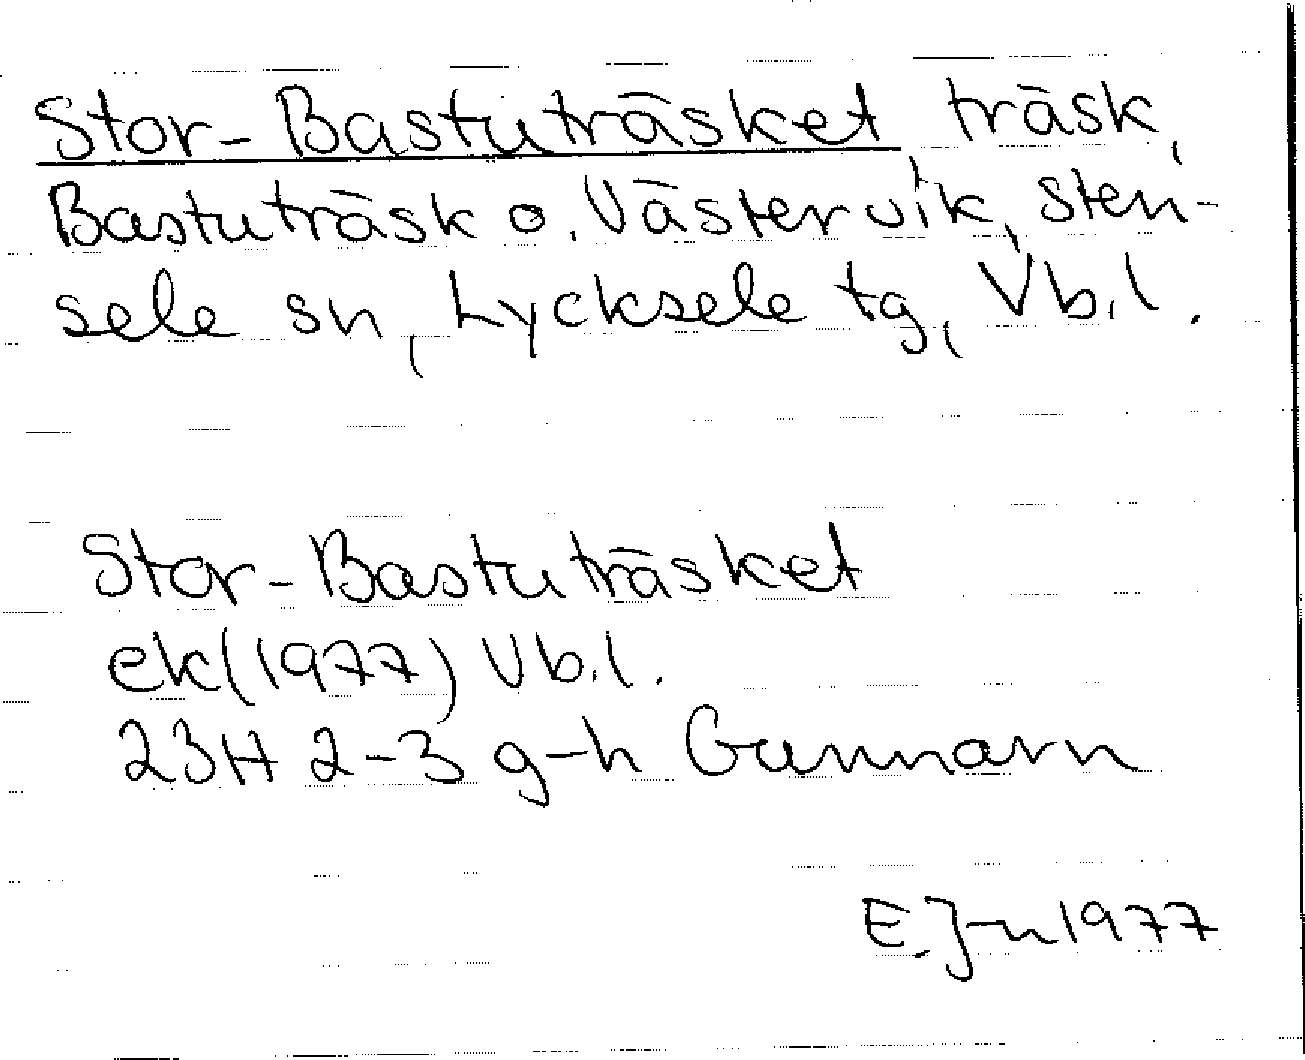 Stor-Bastuträsket träsk,
Bastuträsk o. Västervik, Sten-
sele sn, Lycksele tg, Vb.l.
Stor-Bastuträsket
ek(1977) Vb.l.
23H 2-3 g-h Gunnarn
E.J-n 1977